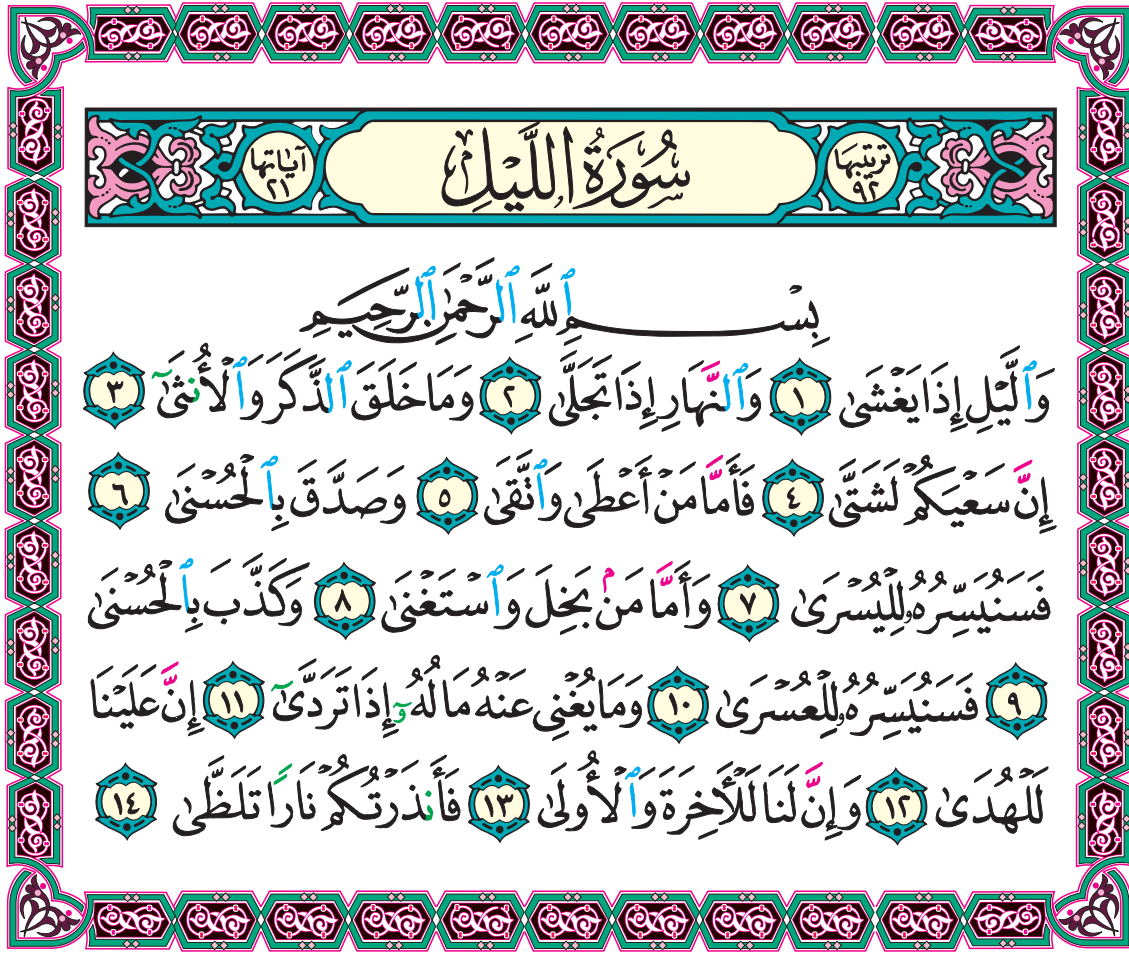 ترتيبها ٩٢ سُورَةُ اللَّيْلِ آيَاتها ٢١
بِسْمِ ٱللَّهِ ٱلرَّحْمَٰنِ ٱلرَّحِيمِ
وَٱلَّيْلِ إِذَا يَغْشَىٰ ١ وَٱلنَّهَارِ إِذَا تَجَلَّىٰ ٢ وَمَا خَلَقَ ٱلذَّكَرَ وَٱلْأُنثَىٰٓ ٣
إِنَّ سَعْيَكُمْ لَشَتَّىٰ ٤ فَأَمَّا مَنْ أَعْطَىٰ وَٱتَّقَىٰ ٥ وَصَدَّقَ بِٱلْحُسْنَىٰ ٦
فَسَنُيَسِّرُهُۥ لِلْيُسْرَىٰ ٧ وَأَمَّا مَنۢ بَخِلَ وَٱسْتَغْنَىٰ ٨ وَكَذَّبَ بِٱلْحُسْنَىٰ
٩ فَسَنُيَسِّرُهُۥ لِلْعُسْرَىٰ ١٠ وَمَا يُغْنِى عَنْهُ مَالُهُۥٓ إِذَا تَرَدَّىٰٓ ١١ إِنَّ عَلَيْنَا
لَلْهُدَىٰ ١٢ وَإِنَّ لَنَا لَلْءَاخِرَةَ وَٱلْأُولَىٰ ١٣ فَأَنذَرْتُكُمْ نَارًا تَلَظَّىٰ ١٤